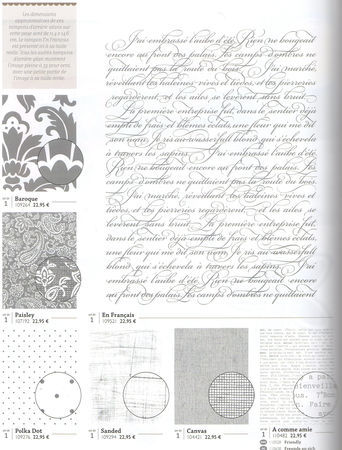 Les dimensions
approximatives de ces
tampons d'arrière-plans sur
cette page sont de 11,4 x 14,6
cm. Le tampon En Français
est présenté ici à sa taille
réelle. Tous les autres tampons
d'arrière-plan montrent
l'image pleine à 33 pour cent,
avec une petite partie de
l'image à sa taille réelle.
J'ai embrassé l'aube d'été. Rien ne bougeait
encore au front des palais. Les camps d'ombres ne
quittaient pas la route du bois. J'ai marché,
réveillant les haleines vives et tièdes, et les pierreries
regardèrent, et les ailes se levèrent sans bruit.
La première entreprise fut, dans le sentier déjà
empli de frais et blêmes éclats, une fleur qui me dit
son nom. Je ris au wasserfall blond qui s'échevela
à travers les sapins. J'ai embrassé l'aube d'été.
Rien ne bougeait encore au front des palais. Les
camps d'ombres ne quittaient pas la route du bois.
J'ai marché, réveillant les haleines vives et
tièdes, et les pierreries regardèrent, et les ailes se
levèrent sans bruit. La première entreprise fut,
dans le sentier déjà empli de frais et blêmes éclats,
une fleur qui me dit son nom. Je ris au wasserfall
blond qui s'échevela à travers les sapins. J'ai
embrassé l'aube d'été. Rien ne bougeait encore
au front des palais. Les camps d'ombres ne quittaient
1 Baroque
109264 22,95 €
1 Paisley
107192 22,95 €
1 En Français
109521 22,95 €
1 Polka Dot
109276 22,95 €
1 Sanded
109294 22,95 €
1 Canvas
104421 22,95 €
a pa
bienveilla
us. T'Bon
Faire
avec
1 A comme amie
110482 22,95 €
Friendly